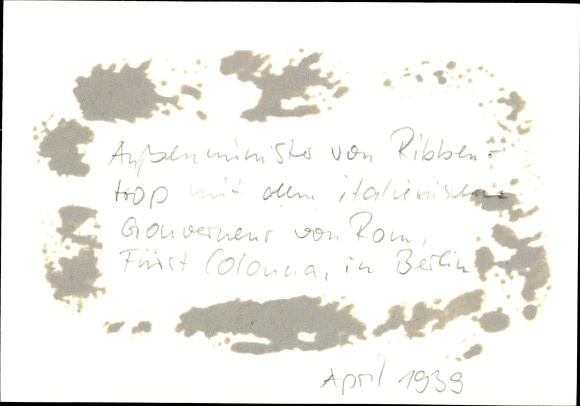 Außenminister von Ribben-
trop mit dem italienischen
Gouverneur von Rom,
Fürst Colonna, in Berlin
April 1939